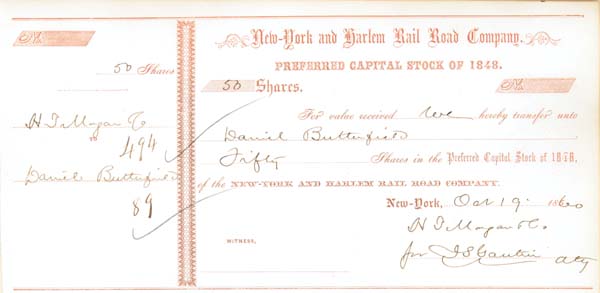 No.
50 Shares
H T Morgan & Co
to
494
Daniel Butterfield
89
New-York and Harlem Rail Road Company.
PREFERRED CAPITAL STOCK OF 1848.
50 Shares.
No.
For value received We hereby transfer unto
Daniel Butterfield
Fifty Shares in the Preferred Capital Stock of 1848,
of the NEW-YORK AND HARLEM RAIL ROAD COMPANY.
New-York, Oct 19 1860
H T Morgan & Co.
WITNESS,
for Atty